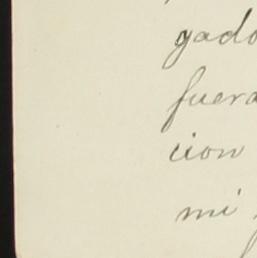 gado
fuera
cion
mi